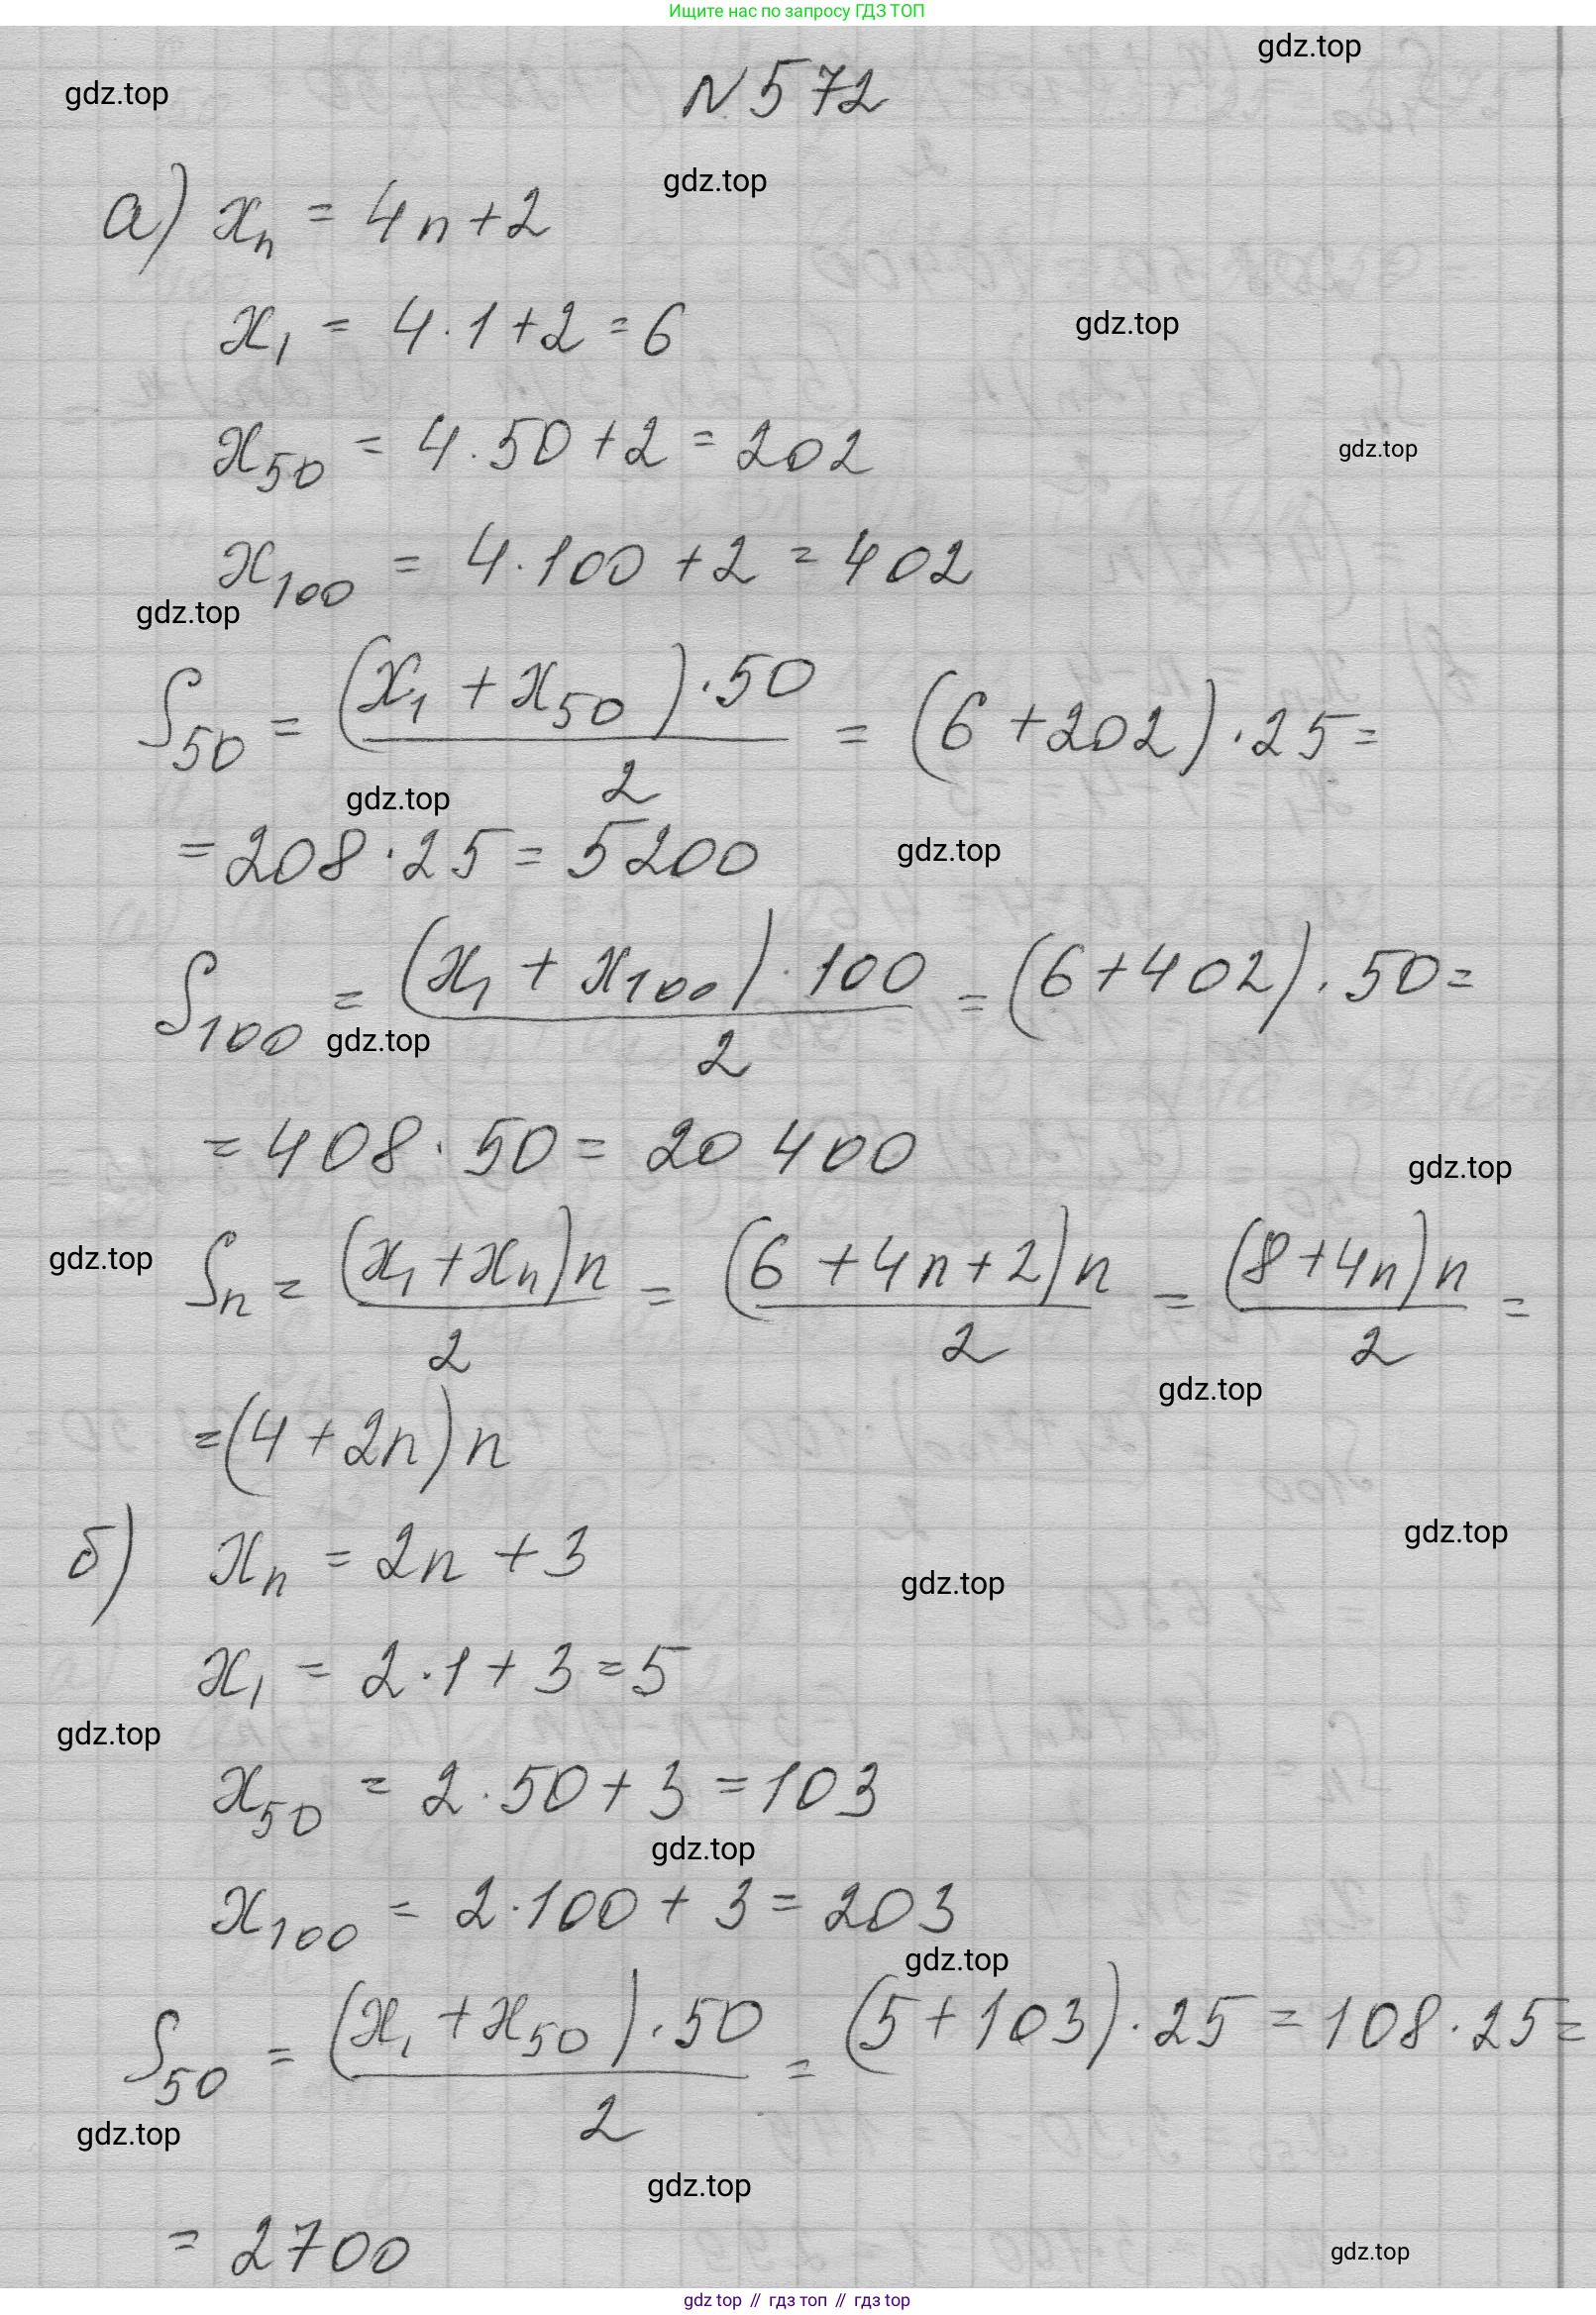 Ищите нас по запросу ГДЗ ТОП
gdz.top
gdz.top
N 572
gdz.top
а) xₙ = 4n + 2
x₁ = 4 · 1 + 2 = 6
gdz.top
x₅₀ = 4 · 50 + 2 = 202
gdz.top
x₁₀₀ = 4 · 100 + 2 = 402
gdz.top
S₅₀ = (x₁ + x₅₀) · 50 / 2 = (6 + 202) · 25 =
gdz.top
= 208 · 25 = 5200
gdz.top
S₁₀₀ = (x₁ + x₁₀₀) · 100 / 2 = (6 + 402) · 50 =
gdz.top
= 408 · 50 = 20 400
gdz.top
gdz.top
Sₙ = (x₁ + xₙ)n / 2 = (6 + 4n + 2)n / 2 = (8 + 4n)n / 2 =
gdz.top
= (4 + 2n)n
gdz.top
б) xₙ = 2n + 3
gdz.top
x₁ = 2 · 1 + 3 = 5
gdz.top
x₅₀ = 2 · 50 + 3 = 103
gdz.top
x₁₀₀ = 2 · 100 + 3 = 203
gdz.top
S₅₀ = (x₁ + x₅₀) · 50 / 2 = (5 + 103) · 25 = 108 · 25 =
gdz.top
gdz.top
= 2700
gdz.top
gdz top // гдз топ // гдз top